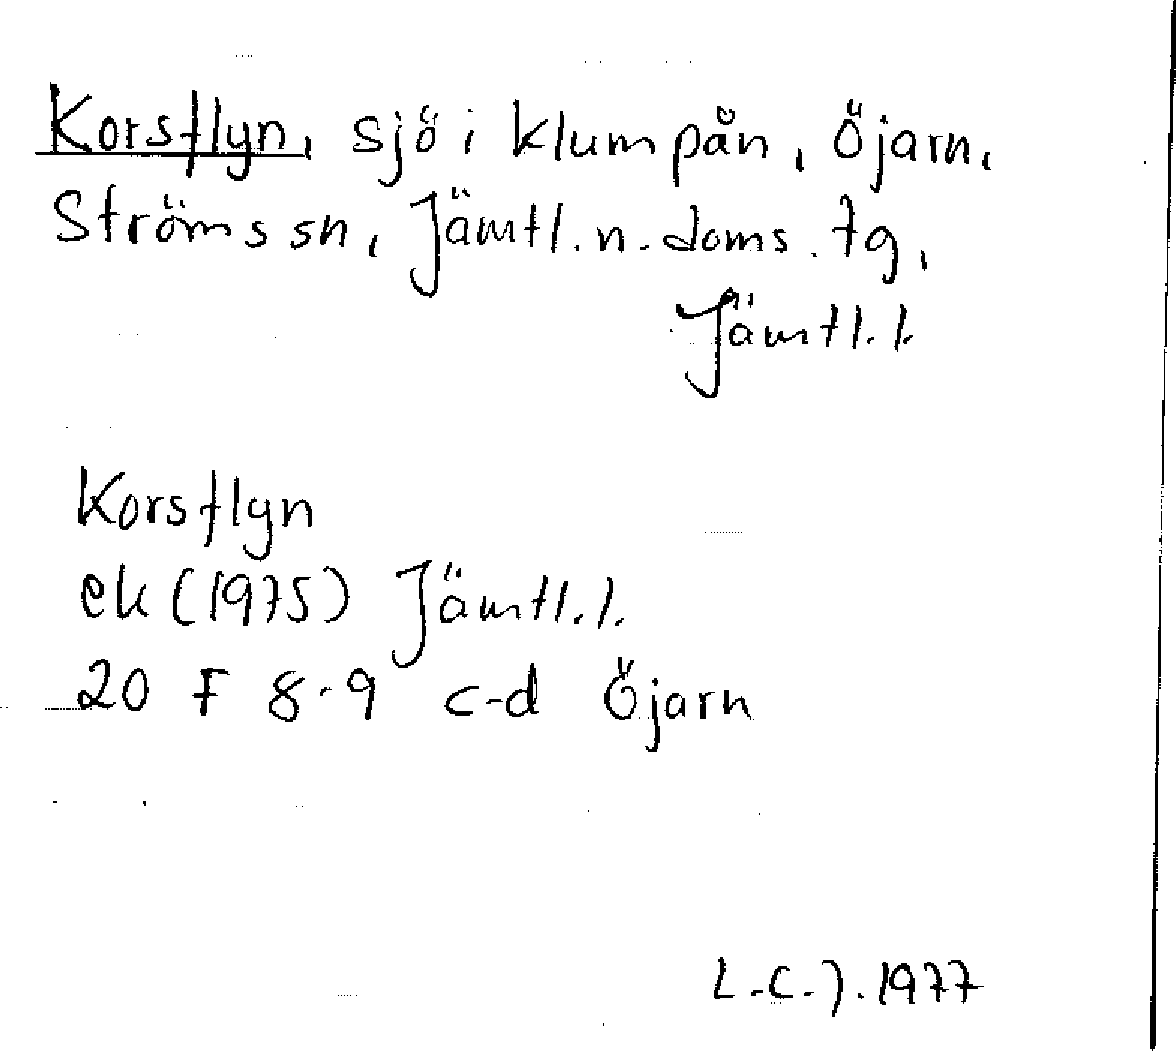 Korsflyn, sjö i Klumpån, Öjarn,
Ströms sn, Jämtl. n. doms. tg,
Jämtl. l.
Korsflyn
ek (1975) Jämtl. l.
20 F 8-9 c-d Öjarn
L.-C. J. 1977